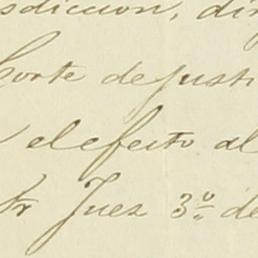 sdiccion, di
Corte de justi
el efecto al
tr Juez 3.º de